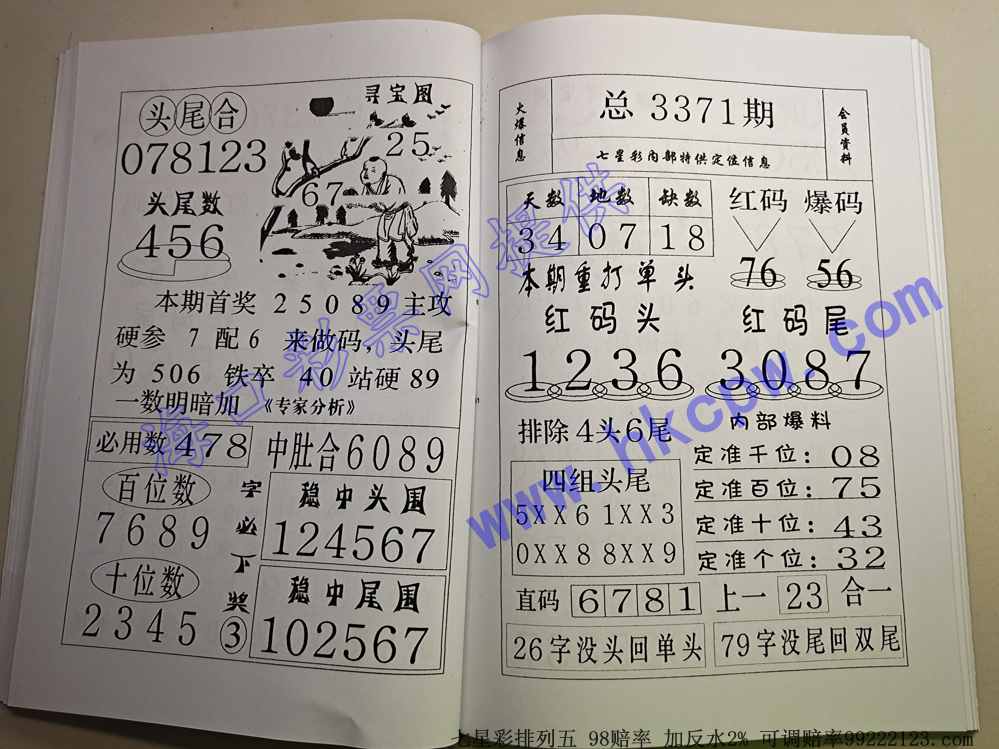 头尾合
078123
寻宝图
25
67
头尾数
456
本期首奖 25089 主攻
硬参 7 配6 来做码，头尾
为 506 铁卒 40 站硬 89
一数明暗加 《专家分析》
必用数 478
中肚合6089
百位数
7689
字必下奖③
稳中头围
124567
十位数
2345
稳中尾围
102567
火爆信息
总 3371期
七星彩内部特供定位信息
会员资料
天数 地数 缺数
34 07 18
红码 爆码
76 56
本期重打单头
红码头 红码尾
1236 3087
排除4头6尾
内部爆料
四组头尾
5XX6 1XX3
0XX8 8XX9
定准千位：08
定准百位：75
定准十位：43
定准个位：32
直码 6781 上一 23 合一
26字没头回单头
79字没尾回双尾
海口彩票网提供
www.hkcpw.com
七星彩排列五 98赔率 加反水2% 可调赔率99222123.com